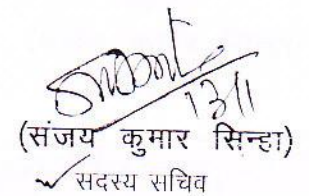 13/1
(संजय कुमार सिन्हा)
सदस्य सचिव